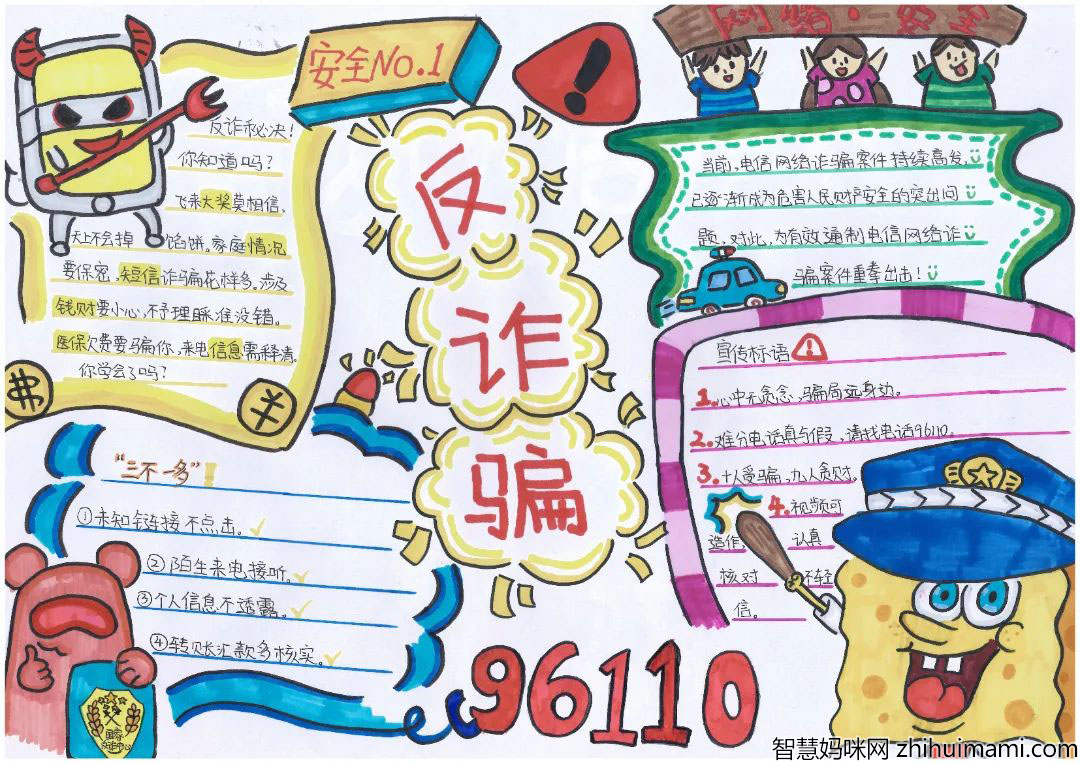 安全NO.1
网络·安全
反诈骗
反诈秘决!
你知道吗?
飞来大奖莫相信,
天上不会掉馅饼。家庭情况
要保密,短信诈骗花样多。涉及
钱财要小心,不予理睬准没错。
医保欠费要骗你,来电信息需释清。
你学会了吗?
当前,电信网络诈骗案件持续高发,
已逐渐成为危害人民财产安全的突出问
题,对此,为有效遏制电信网络诈
骗案件重拳出击!
宣传标语
1.心中无贪念,骗局远身边。
2.难分电话真与假,请找电话96110。
3.十人受骗,九人贪财。
4.视频可
造作 认真
核对 不轻
信。
“三不一多”!
①未知链接不点击。
②陌生来电接听。
③个人信息不透露。
④转账汇款多核实。
96110
国家
反诈中心
智慧妈咪网 zhihuimami.com